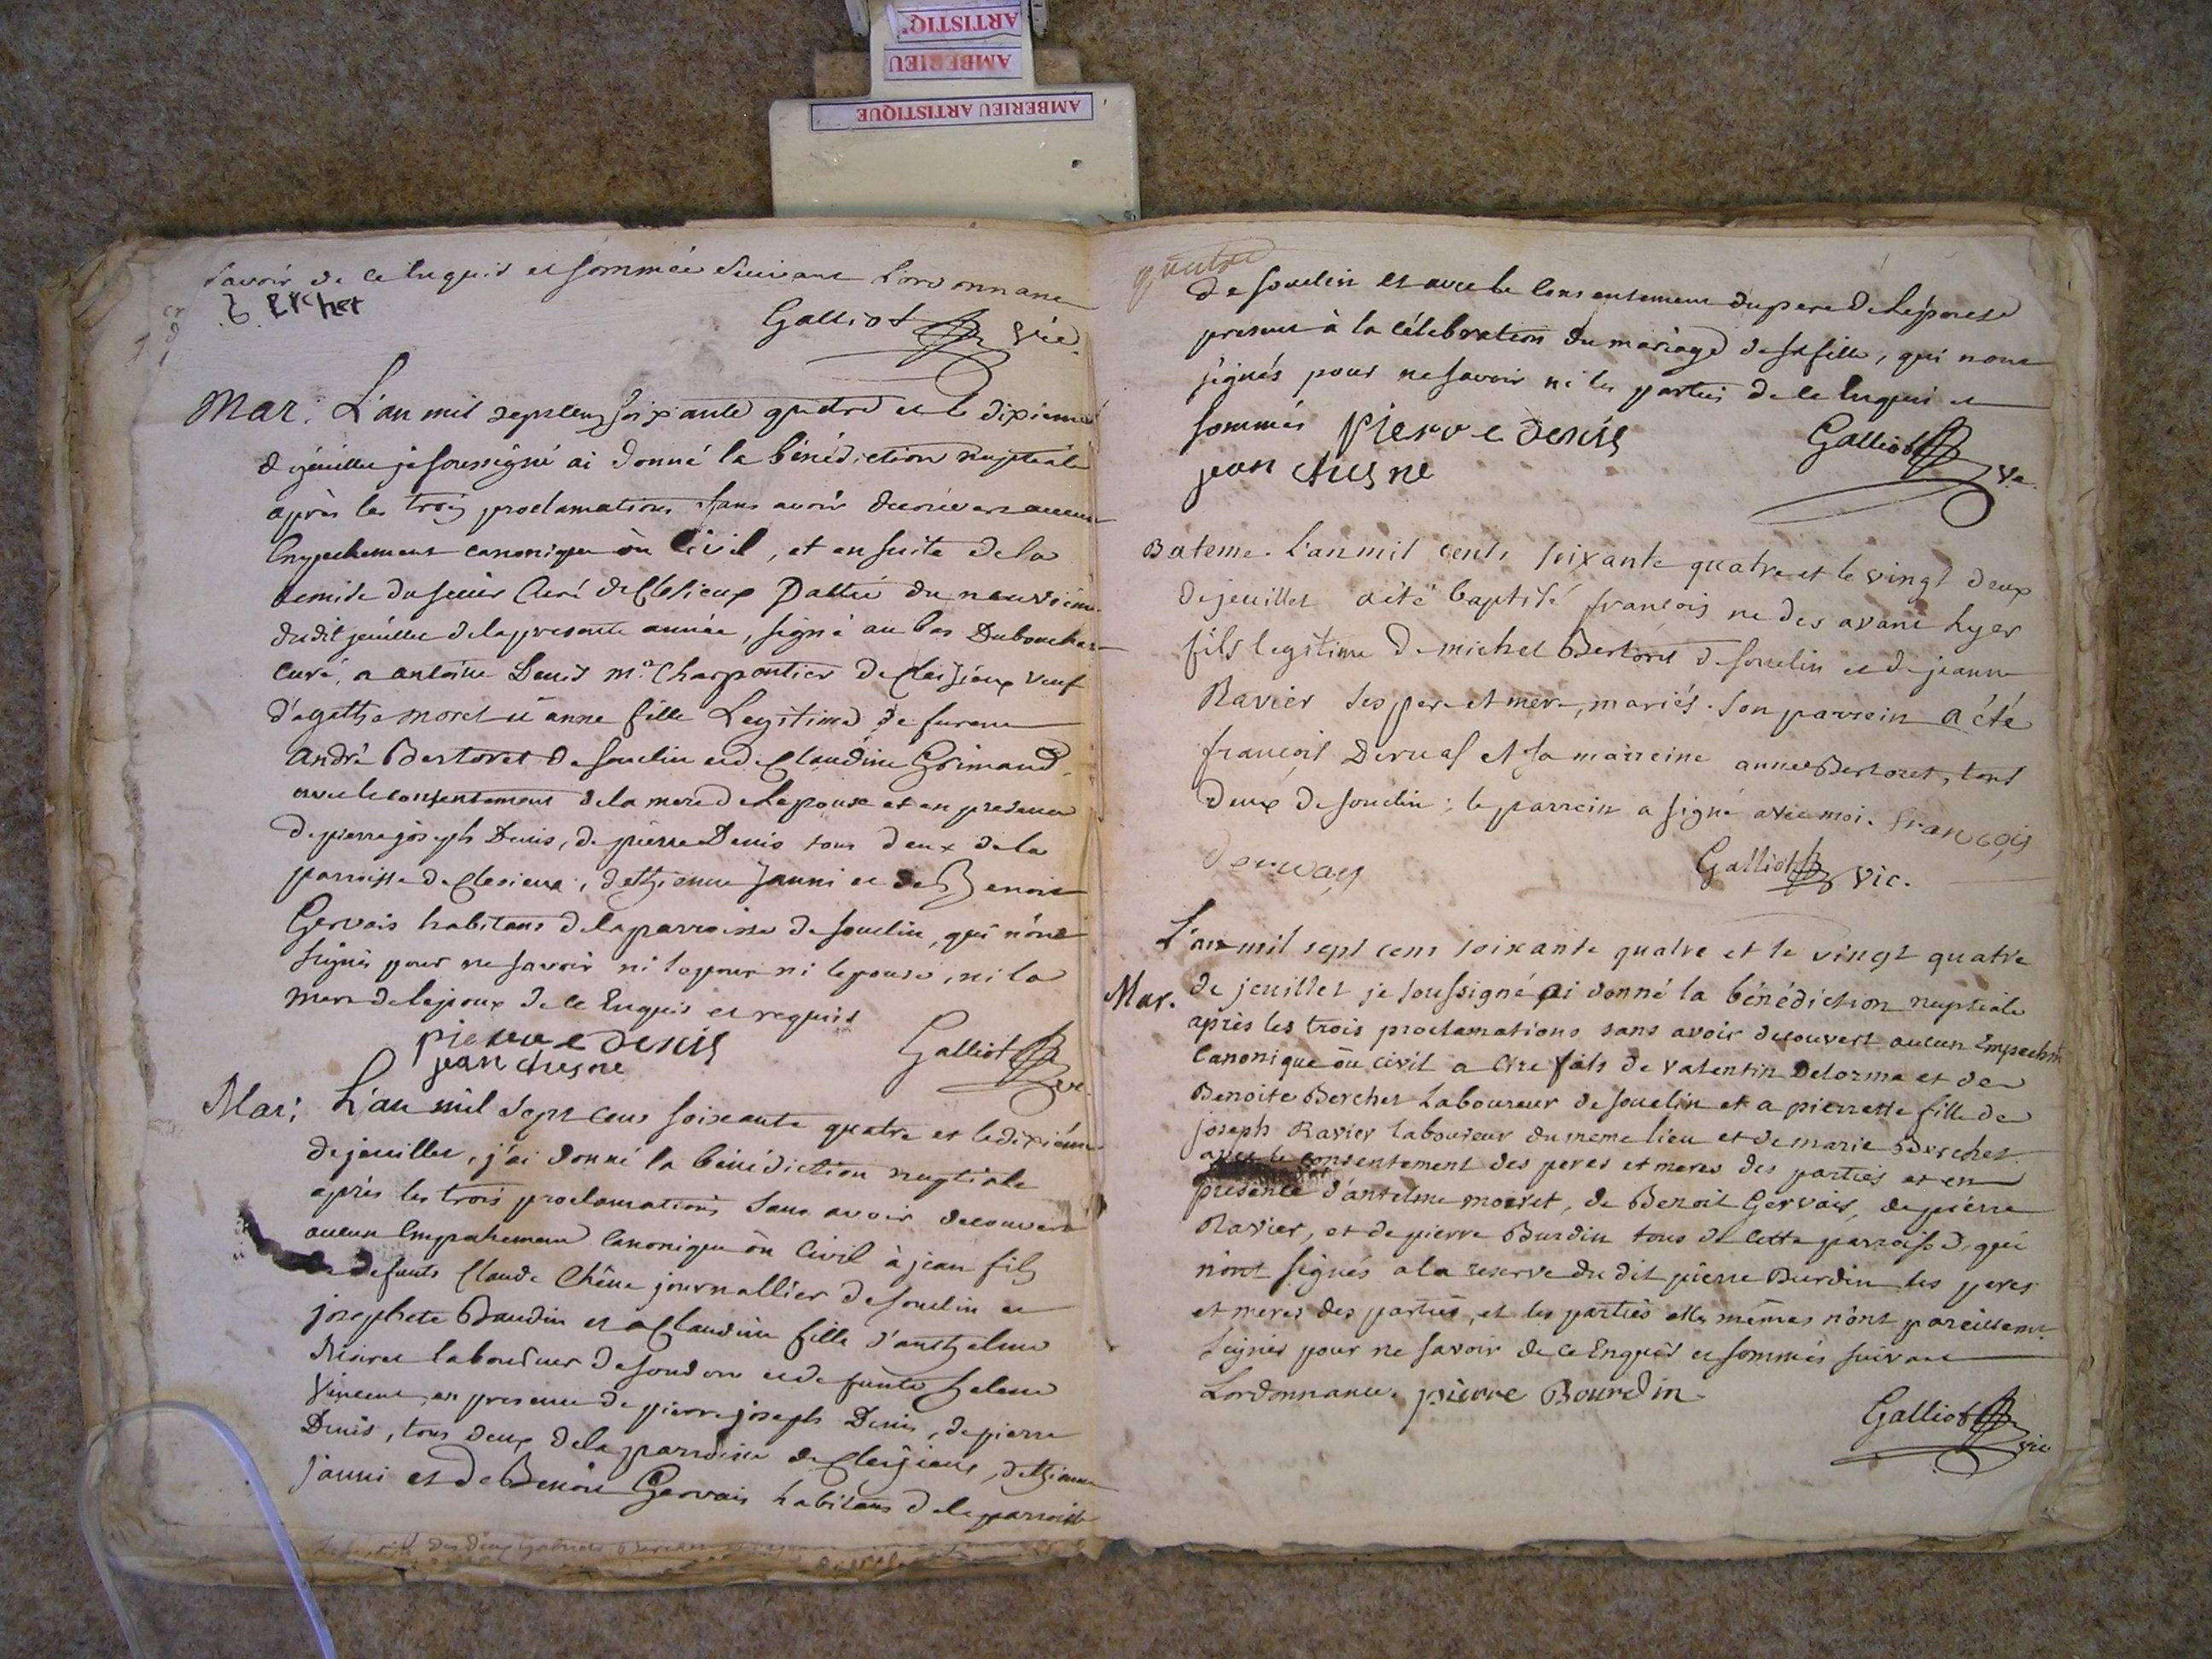 ARTISTIQ
AMBERIEU
AMBERIEU ARTISTIQUE
savoir de ce Enquis et sommée suivant l'ordonnance
Galliot vic.
Mar. L'an mil sept cens soixante quatre et le dixieme
de jeuillet je soussigné ai donné la bénédiction nuptiale
après les trois proclamations sans avoir decouvert aucun
Empechement canonique ou Civil, et en suite de la
remise du sieur Curé de Clesieux Dattée du neuvieme
dudit jeuillet de la presente année, signé au bas
curé, a antoine Denis me. Charpentier de Cleisieux veuf
d'agathe moret et anne fille Legitime de
André Bertoret de souclin et de Claudine Grimaud
avec le consentement de la mere de Lepouse et en presence
de pierre joseph Denis, de pierre Denis tous deux de la
parroisse de Clesieux, d'ethienne Janni et de Benoit
Gervais habitans de la parroisse de souclin, qui n'ont
signés pour ne savoir ni lepoux ni lepouse, ni la
mere de lepoux de ce Enquis et requis
pierre denis
jean chesne
Galliot vic.
Mar. L'an mil sept cens soixante quatre et le dixiéme
de jeuillet, j'ai donné la bénédiction nuptiale
après les trois proclamations sans avoir decouvert
aucun Empechement Canonique ou Civil à jean fils
de defunts Claude Chêne journallier de souclin et
josephete Baudin et a Claudine fille d'anthelme
laboureur de soudon et de funte helene
Vincent, en presence de pierre joseph Denis, de pierre
Denis, tous deux de la parroisse de Cleisieux, d'ethienne
janni et de Benoit Gervais habitans de la parroisse
de souclin et avec le consentement du pere de Lepouse
present à la célébration du mariage de sa fille, qui n'ont
signés pour ne savoir ni les parties de ce Enquis et
sommés pierre denis
jean chesne
Galliot vic.
Bateme. L'an mil cents soixante quatre et le vingt deux
de jeuillet a été baptisé françois né des avant hyer
fils legitime de michel Bertoret de souclin et de jeanne
Ravier ses pere et mere, mariés. Son parrein a été
françois Dervas et sa marreine anne Bertoret, tous
deux de souclin; le parrein a signé avec moi. francois
derway
Galliot vic.
L'an mil sept cens soixante quatre et le vingt quatre
Mar. de jeuillet je soussigné ai donné la bénédiction nuptiale
après les trois proclamations sans avoir decouvert aucun Empechmt
Canonique ou civil a Cire fils de Valentin Delorme et de
Benoite Berchet Laboureur de souclin et a pierrette fille de
joseph Ravier laboureur du meme lieu et de marie Berchet
avec le consentement des peres et meres des parties et en
presence d'antelme moiret, de Benoit Gervais, de pierre
Ravier, et de pierre Burdin tous de cette parroisse, qui
n'ont signés a la reserve du dit pierre Burdin les peres
et meres des parties, et les parties elles mêmes n'ont pareillemt
signés pour ne savoir de ce Enquis et sommés suivant
Lordonnance. pierre Bourdin.
Galliot vic